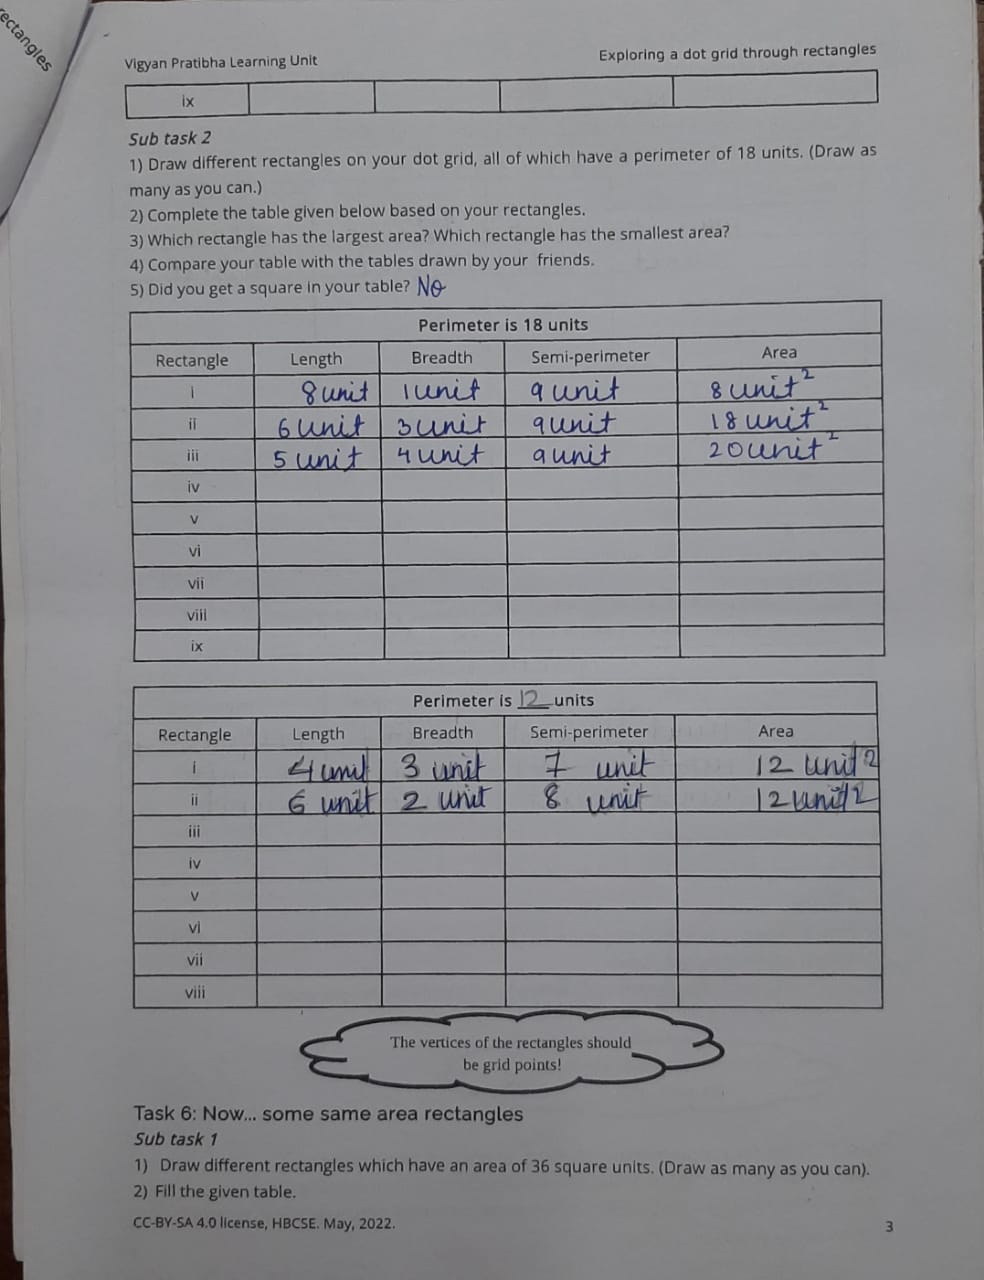 rectangles
Vigyan Pratibha Learning Unit Exploring a dot grid through rectangles
ix
Sub task 2
1) Draw different rectangles on your dot grid, all of which have a perimeter of 18 units. (Draw as
many as you can.)
2) Complete the table given below based on your rectangles.
3) Which rectangle has the largest area? Which rectangle has the smallest area?
4) Compare your table with the tables drawn by your friends.
5) Did you get a square in your table? No
Perimeter is 18 units
Rectangle Length Breadth Semi-perimeter Area
i 8 unit 1 unit 9 unit 8 unit²
ii 6 unit 3 unit 9 unit 18 unit²
iii 5 unit 4 unit 9 unit 20 unit²
iv
v
vi
vii
viii
ix
Perimeter is 12 units
Rectangle Length Breadth Semi-perimeter Area
i 4 unit 3 unit 7 unit 12 unit2
ii 6 unit 2 unit 8 unit 12 unit2
iii
iv
v
vi
vii
viii
The vertices of the rectangles should
be grid points!
Task 6: Now... some same area rectangles
Sub task 1
1) Draw different rectangles which have an area of 36 square units. (Draw as many as you can).
2) Fill the given table.
CC-BY-SA 4.0 license, HBCSE. May, 2022. 3